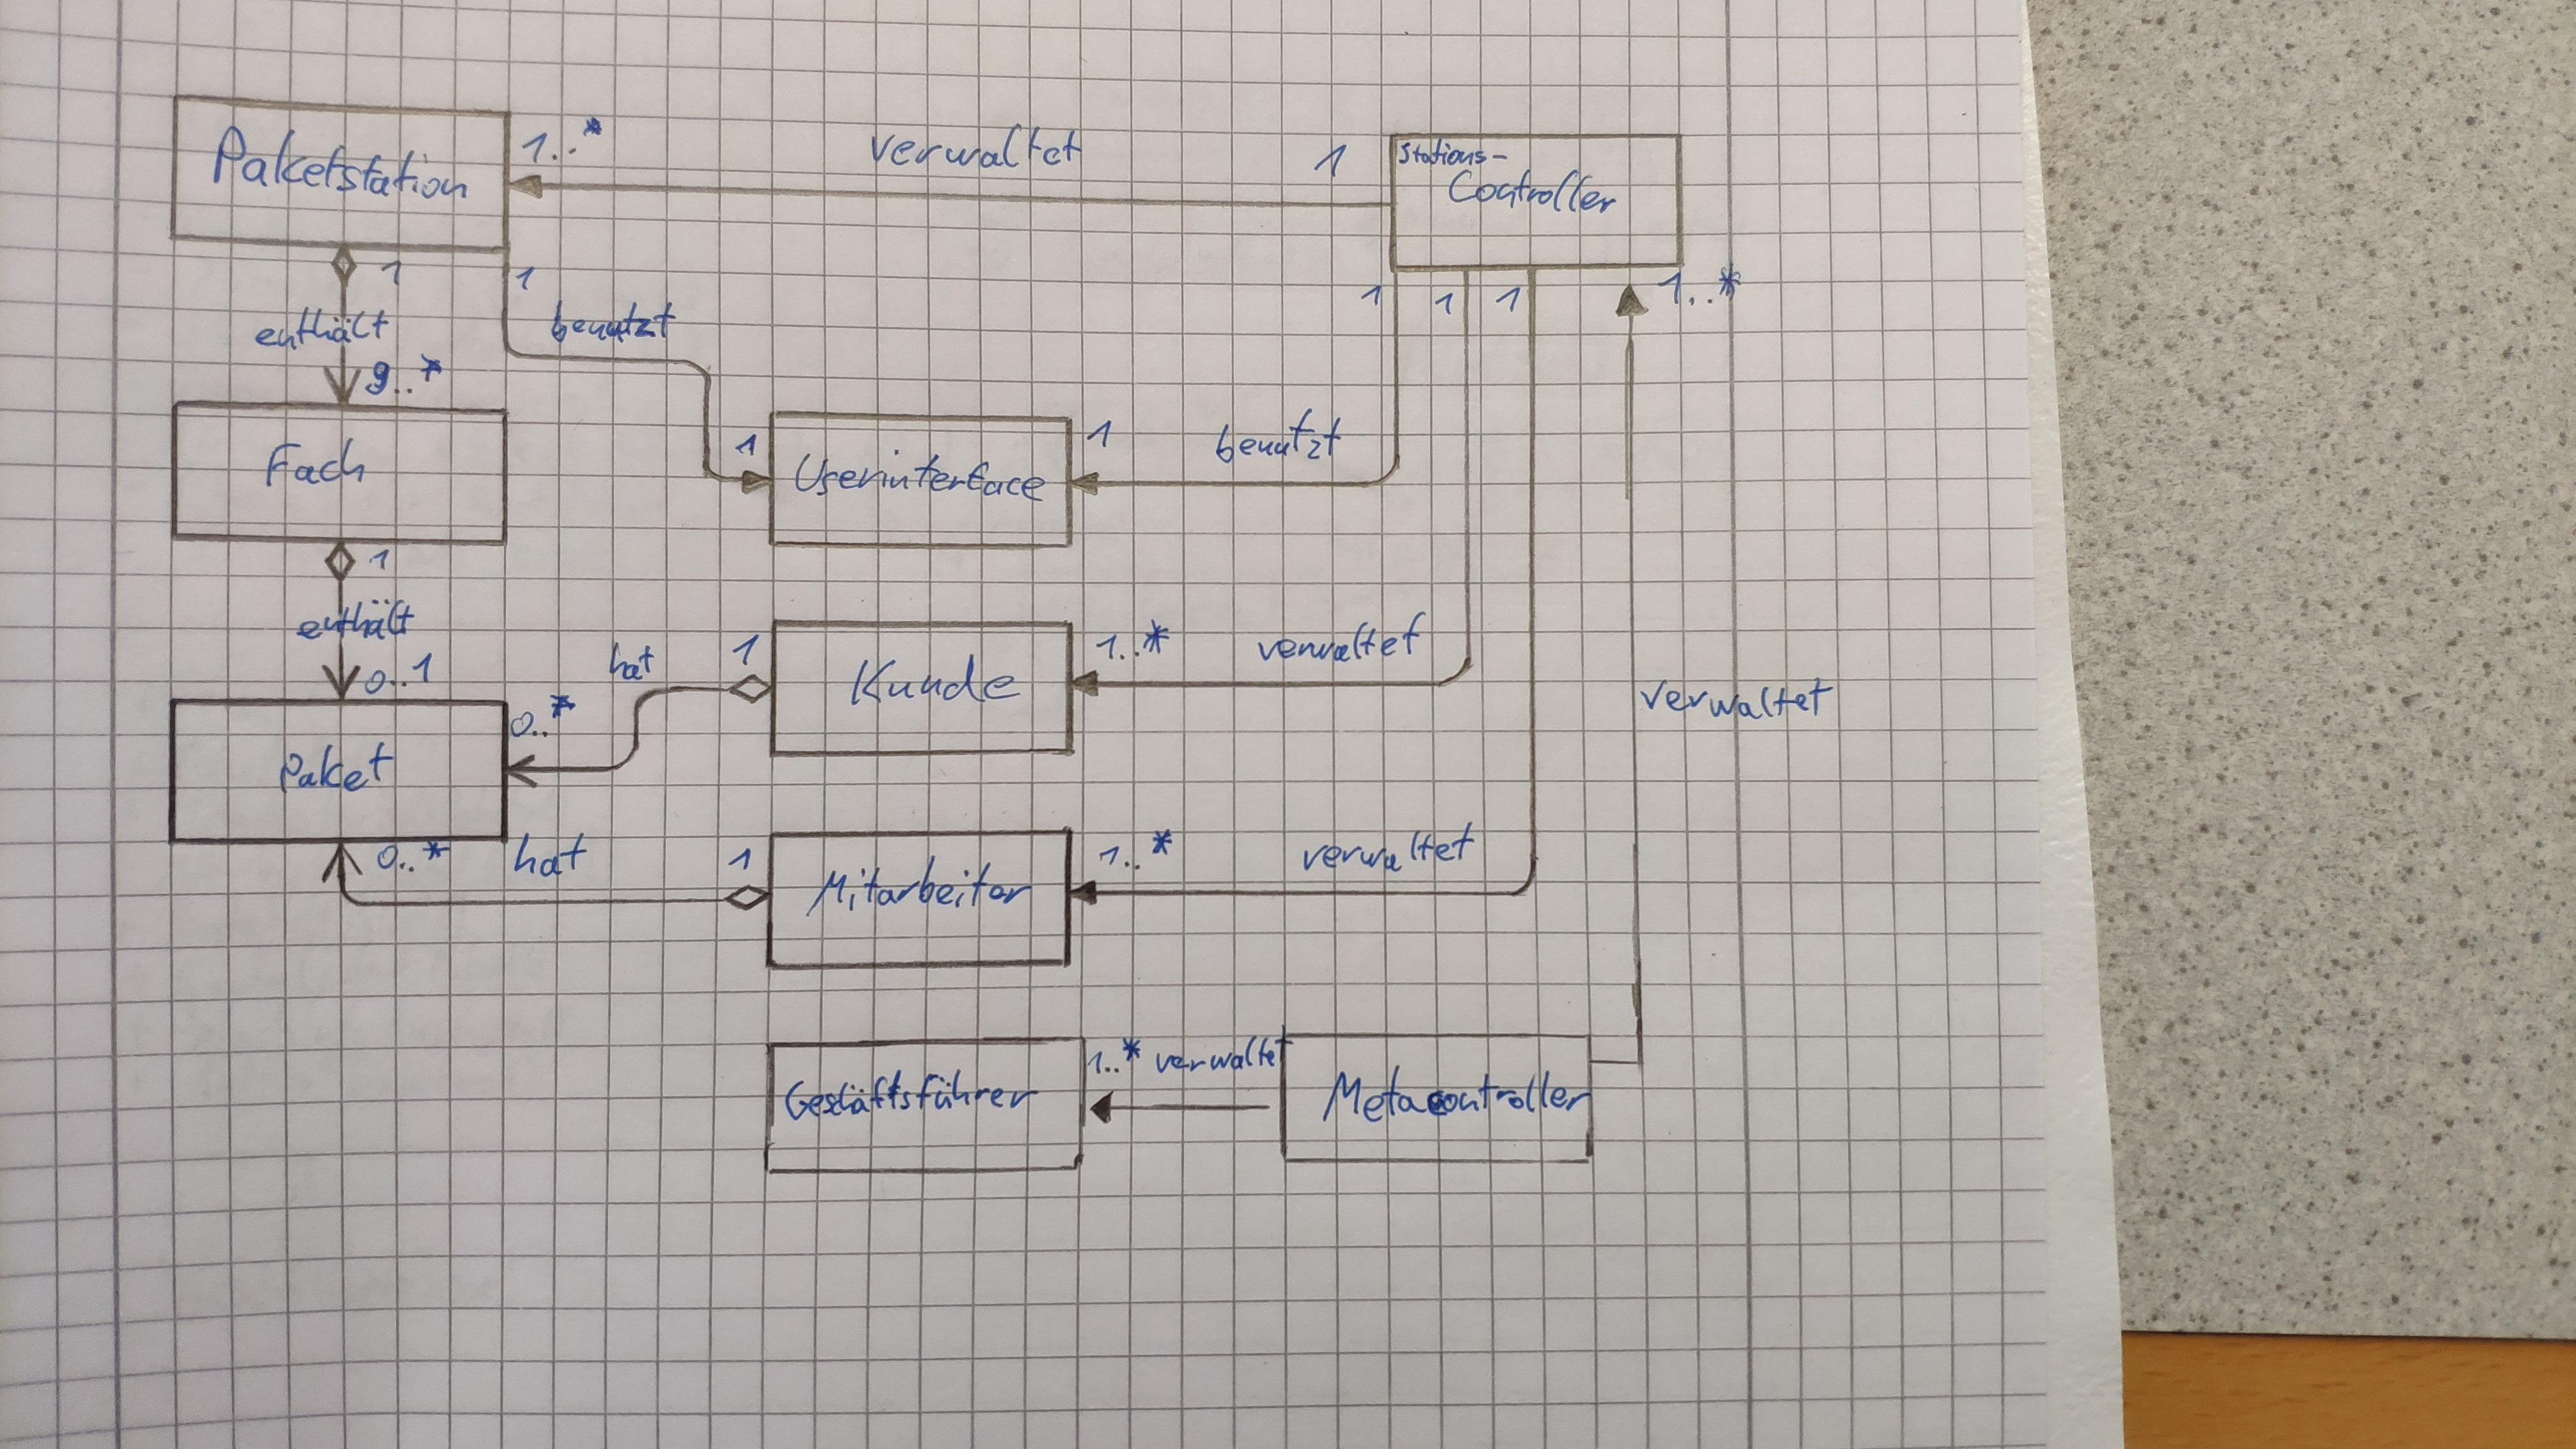 Paketstation
1..*
verwaltet
1
Stations-
Controller
1
enthält
9..*
1
benutzt
1
1
1
1
1..*
Fach
1
Userinterface
1
benutzt
1
enthält
0..1
hat
1
Kunde
1..*
verwaltet
verwaltet
Paket
0..*
0..*
hat
1
Mitarbeiter
1..*
verwaltet
Geschäftsführer
1..*
verwaltet
Metacontroller